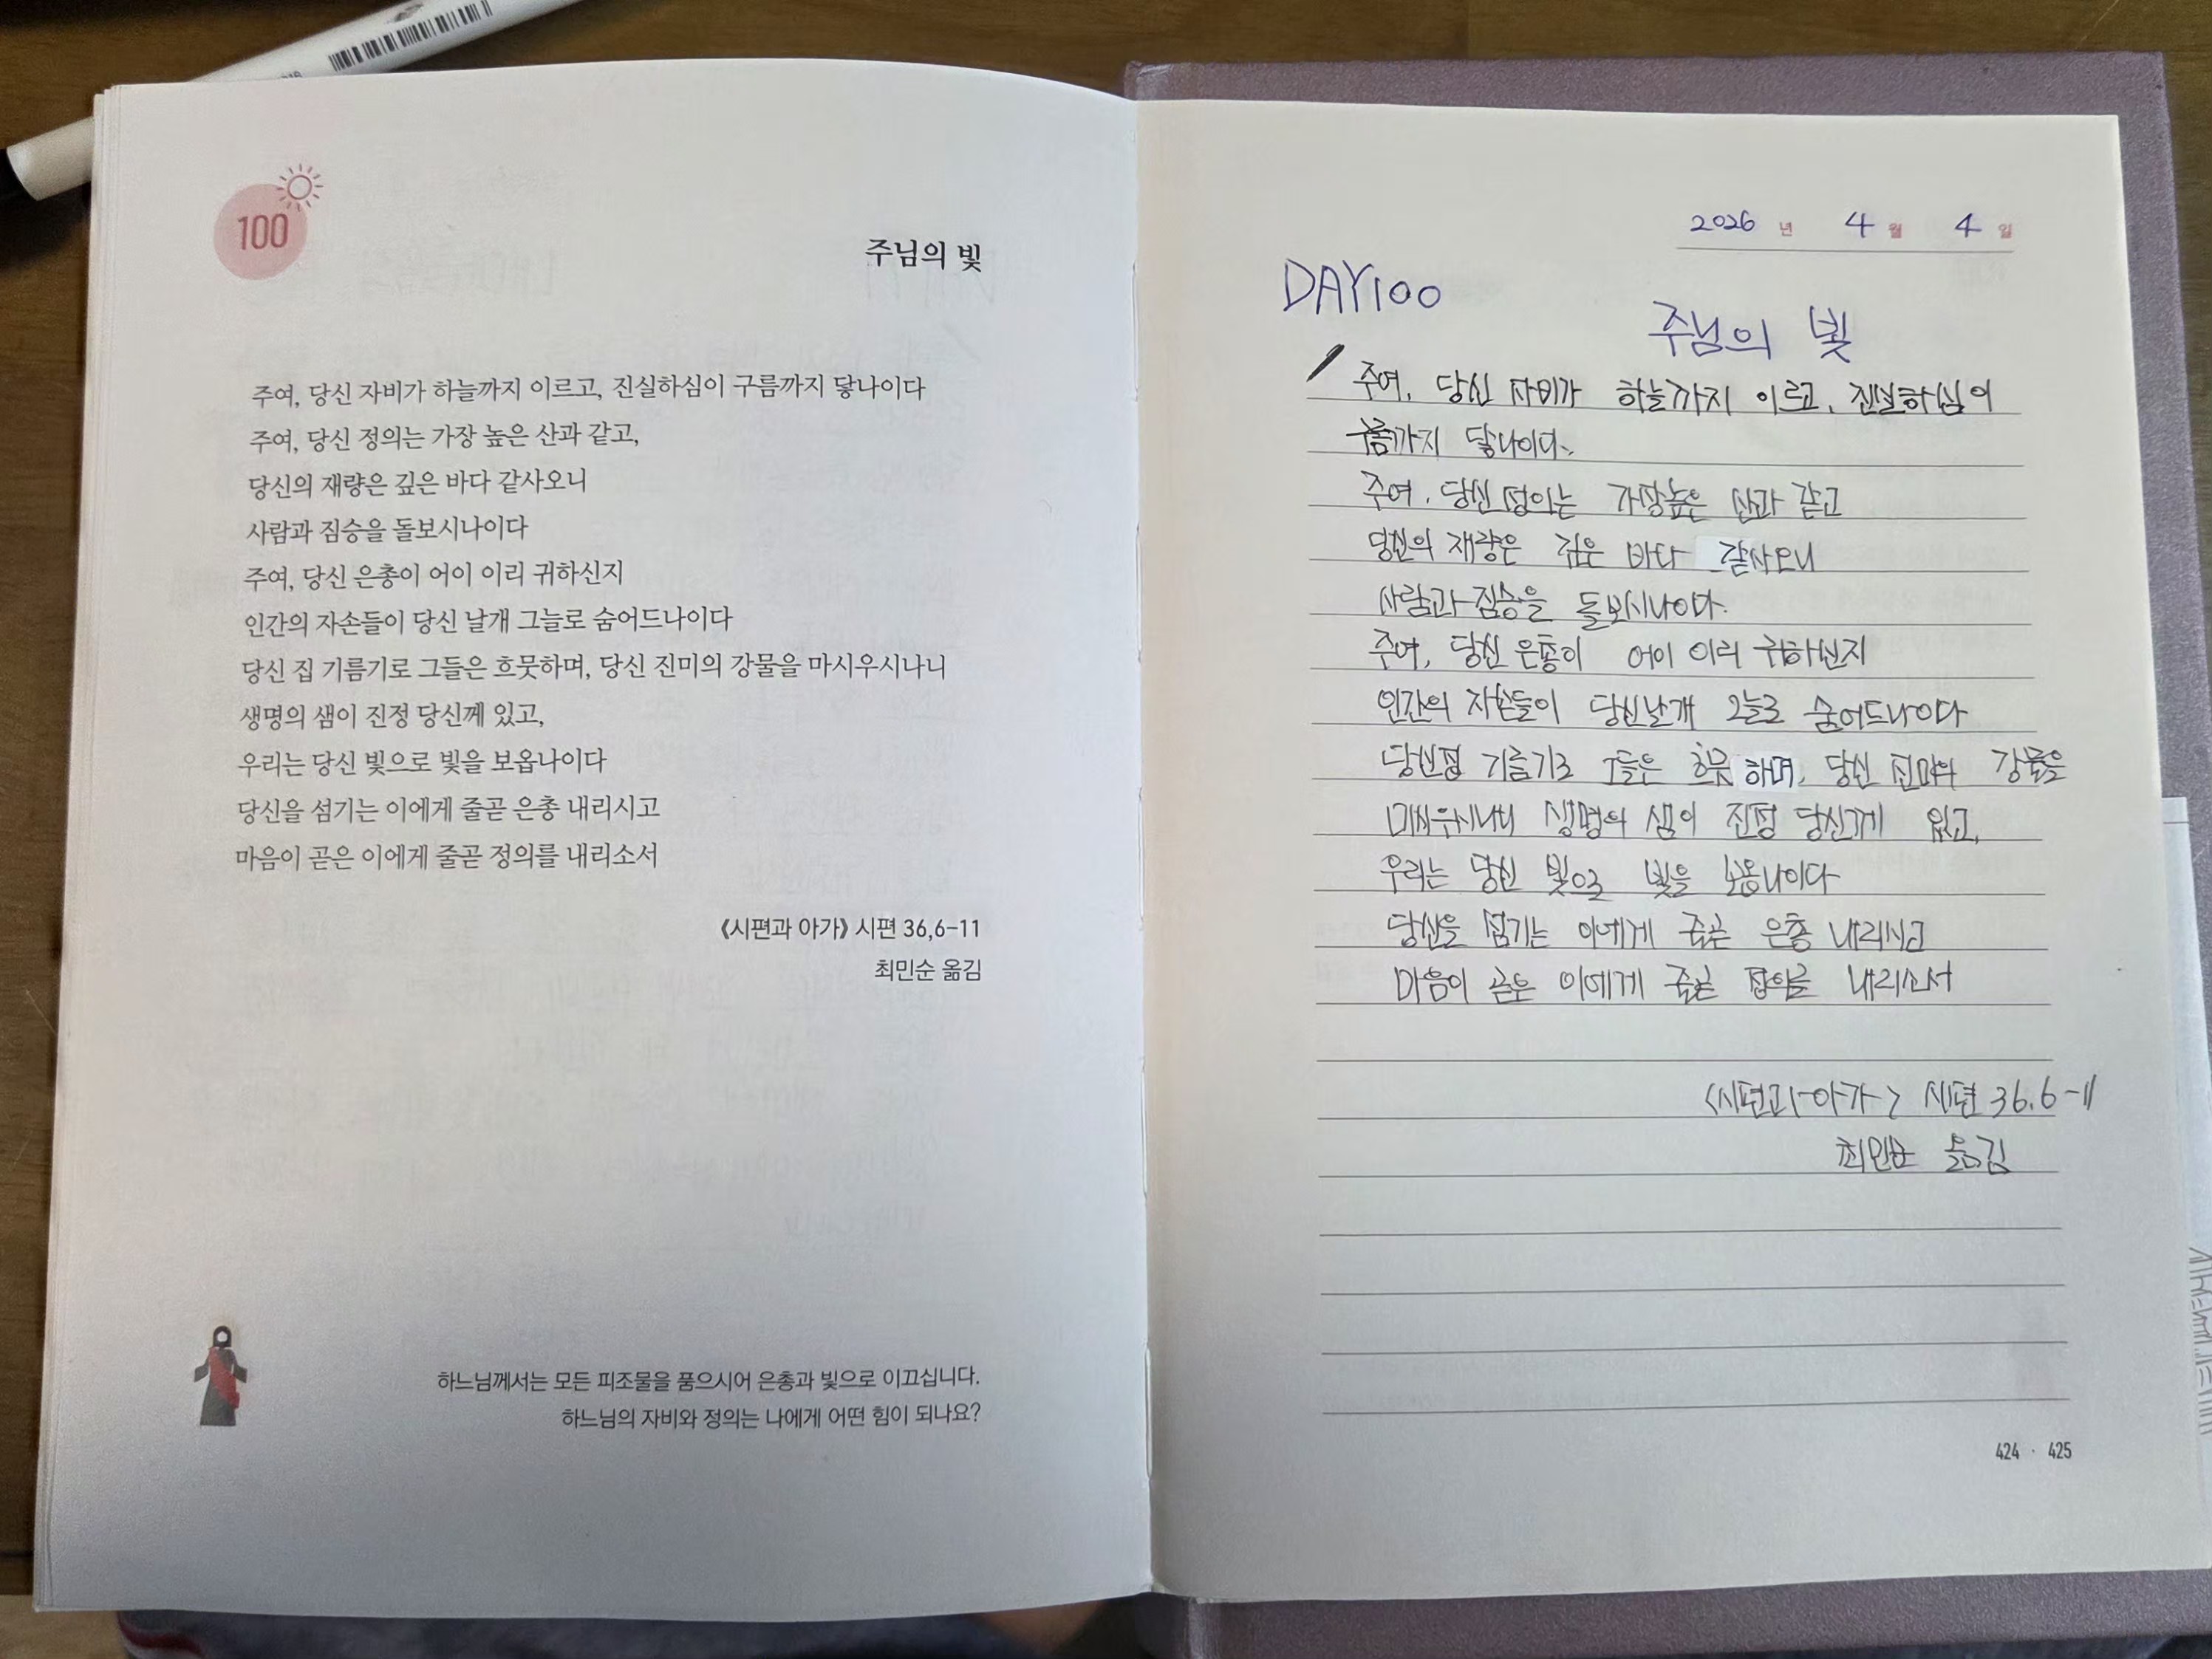 100
주님의 빛
주여, 당신 자비가 하늘까지 이르고, 진실하심이 구름까지 닿나이다
주여, 당신 정의는 가장 높은 산과 같고,
당신의 재량은 깊은 바다 같사오니
사람과 짐승을 돌보시나이다
주여, 당신 은총이 어이 이리 귀하신지
인간의 자손들이 당신 날개 그늘로 숨어드나이다
당신 집 기름기로 그들은 흐뭇하며, 당신 진미의 강물을 마시우시나니
생명의 샘이 진정 당신께 있고,
우리는 당신 빛으로 빛을 보옵나이다
당신을 섬기는 이에게 줄곧 은총 내리시고
마음이 곧은 이에게 줄곧 정의를 내리소서
《시편과 아가》 시편 36,6-11
최민순 옮김
하느님께서는 모든 피조물을 품으시어 은총과 빛으로 이끄십니다.
하느님의 자비와 정의는 나에게 어떤 힘이 되나요?
2026 년 4 월 4 일
DAY100
주님의 빛
주여, 당신 자비가 하늘까지 이르고, 진실하심이
구름까지 닿나이다.
주여, 당신 정의는 가장높은 산과 같고
당신의 재량은 깊은 바다 같사오니
사람과 짐승을 돌보시나이다.
주여, 당신 은총이 어이 이리 귀하신지
인간의 자손들이 당신날개 그늘로 숨어드나이다
당신집 기름기로 그들은 흐뭇하며, 당신 진미의 강물을
마시우시나니 생명의 샘이 진정 당신께 있고,
우리는 당신 빛으로 빛을 보옵나이다
당신을 섬기는 이에게 줄곧 은총 내리시고
마음이 곧은 이에게 줄곧 정의를 내리소서
<시편과 아가> 시편 36,6-11
최민순 옮김
424 · 425